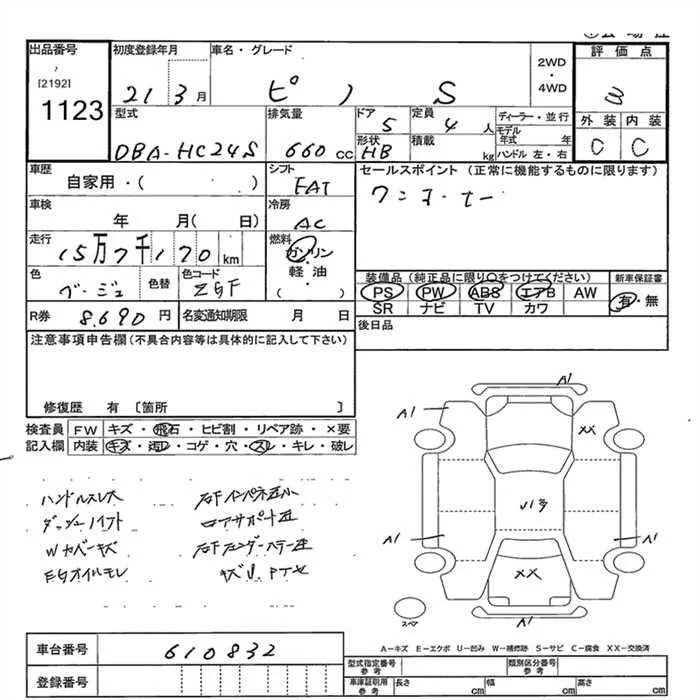 出品番号 初度登録年月 車名・グレード 2WD・4WD 評価点
[2192]
1123 21 3月 ピノ S 3
型式 排気量 ドア 5 定員 4人 ディーラー・並行 外装 内装
DBA-HC24S 660cc 形状 HB 積載 kg モデル年式 年 ハンドル 左・右 C C
車歴 シフト セールスポイント (正常に機能するものに限ります)
自家用・( ) FAT ワンオーナー
車検 冷房
年 月( 日) AC
走行 燃料
15万7千170km ガソリン・軽油
色 色替 色コード ( ) 装備品 (純正品に限り○をつけてください) 新車保証書
ベージュ ZGF PS PW ABS エアB AW 有・無
SR ナビ TV カワ
R券 8,690円 名変通知期限 月 日 後日品
注意事項申告欄(不具合内容等は具体的に記入して下さい)
修復歴 有 〔箇所 〕
検査員 FW キズ・飛石・ヒビ割・リペア跡・×要
記入欄 内装 キズ・汚レ・コゲ・穴・スレ・キレ・破レ
A1
A1 XX
ハンドルスレ大 右Fインパネ凹小
ダッシュ
Wカバーキズ
EgオイルモレA1 A1
XX
スペア A1
A-キズ E-エクボ U-凹み W-補修跡 S-サビ C-腐食 XX-交換済
車台番号 610832
登録番号 型式指定番号 参考 類別区分番号 参考
車庫証明用 参考 長さ cm 幅 cm 高さ cm